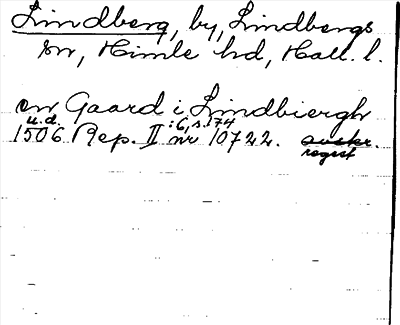 Lindberg, by, Lindbergs
sn, Himle hd, Hall. l.
en Gaard i Lindbiergh
u.d. :6, s. 174
1506 Rep. II nr 10722. avskr.
regest